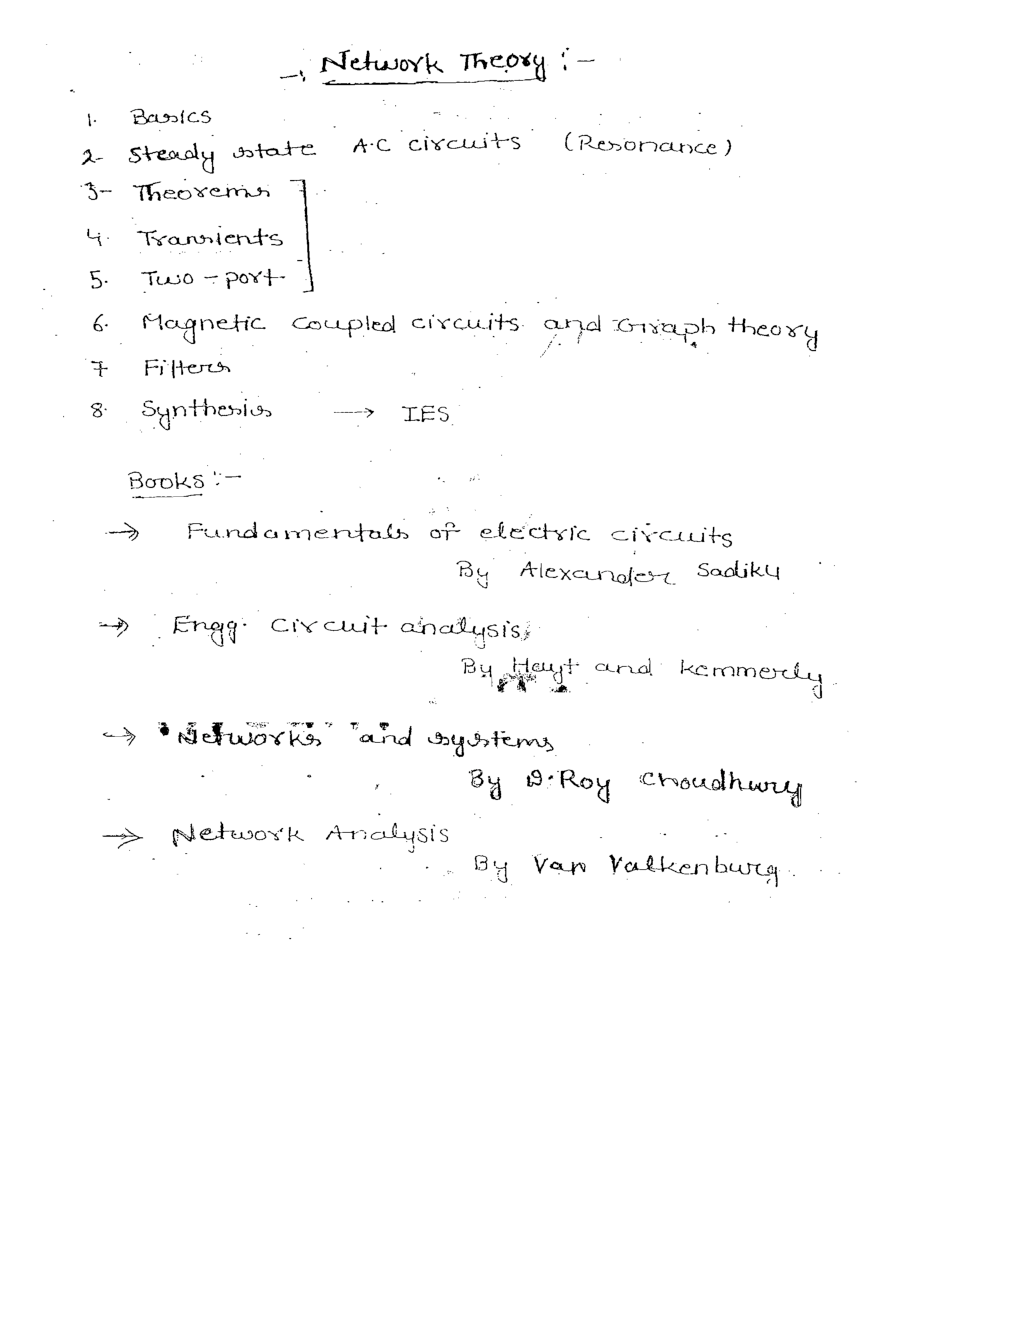 -: Network Theory :-
1. Basics
2- Steady state A.C circuits (Resonance)
3- Theorems
4. Transients
5. Two-port
6. Magnetic coupled circuits and Graph theory
7 Filters
8. Synthesis → IES
Books :-
→ Fundamentals of electric circuits
By Alexander Sadiku
→ Engg. circuit analysis,
By Hayt and kemmerly
→ Networks and systems
By D. Roy Choudhury
→ Network Analysis
By Van Valkenburg